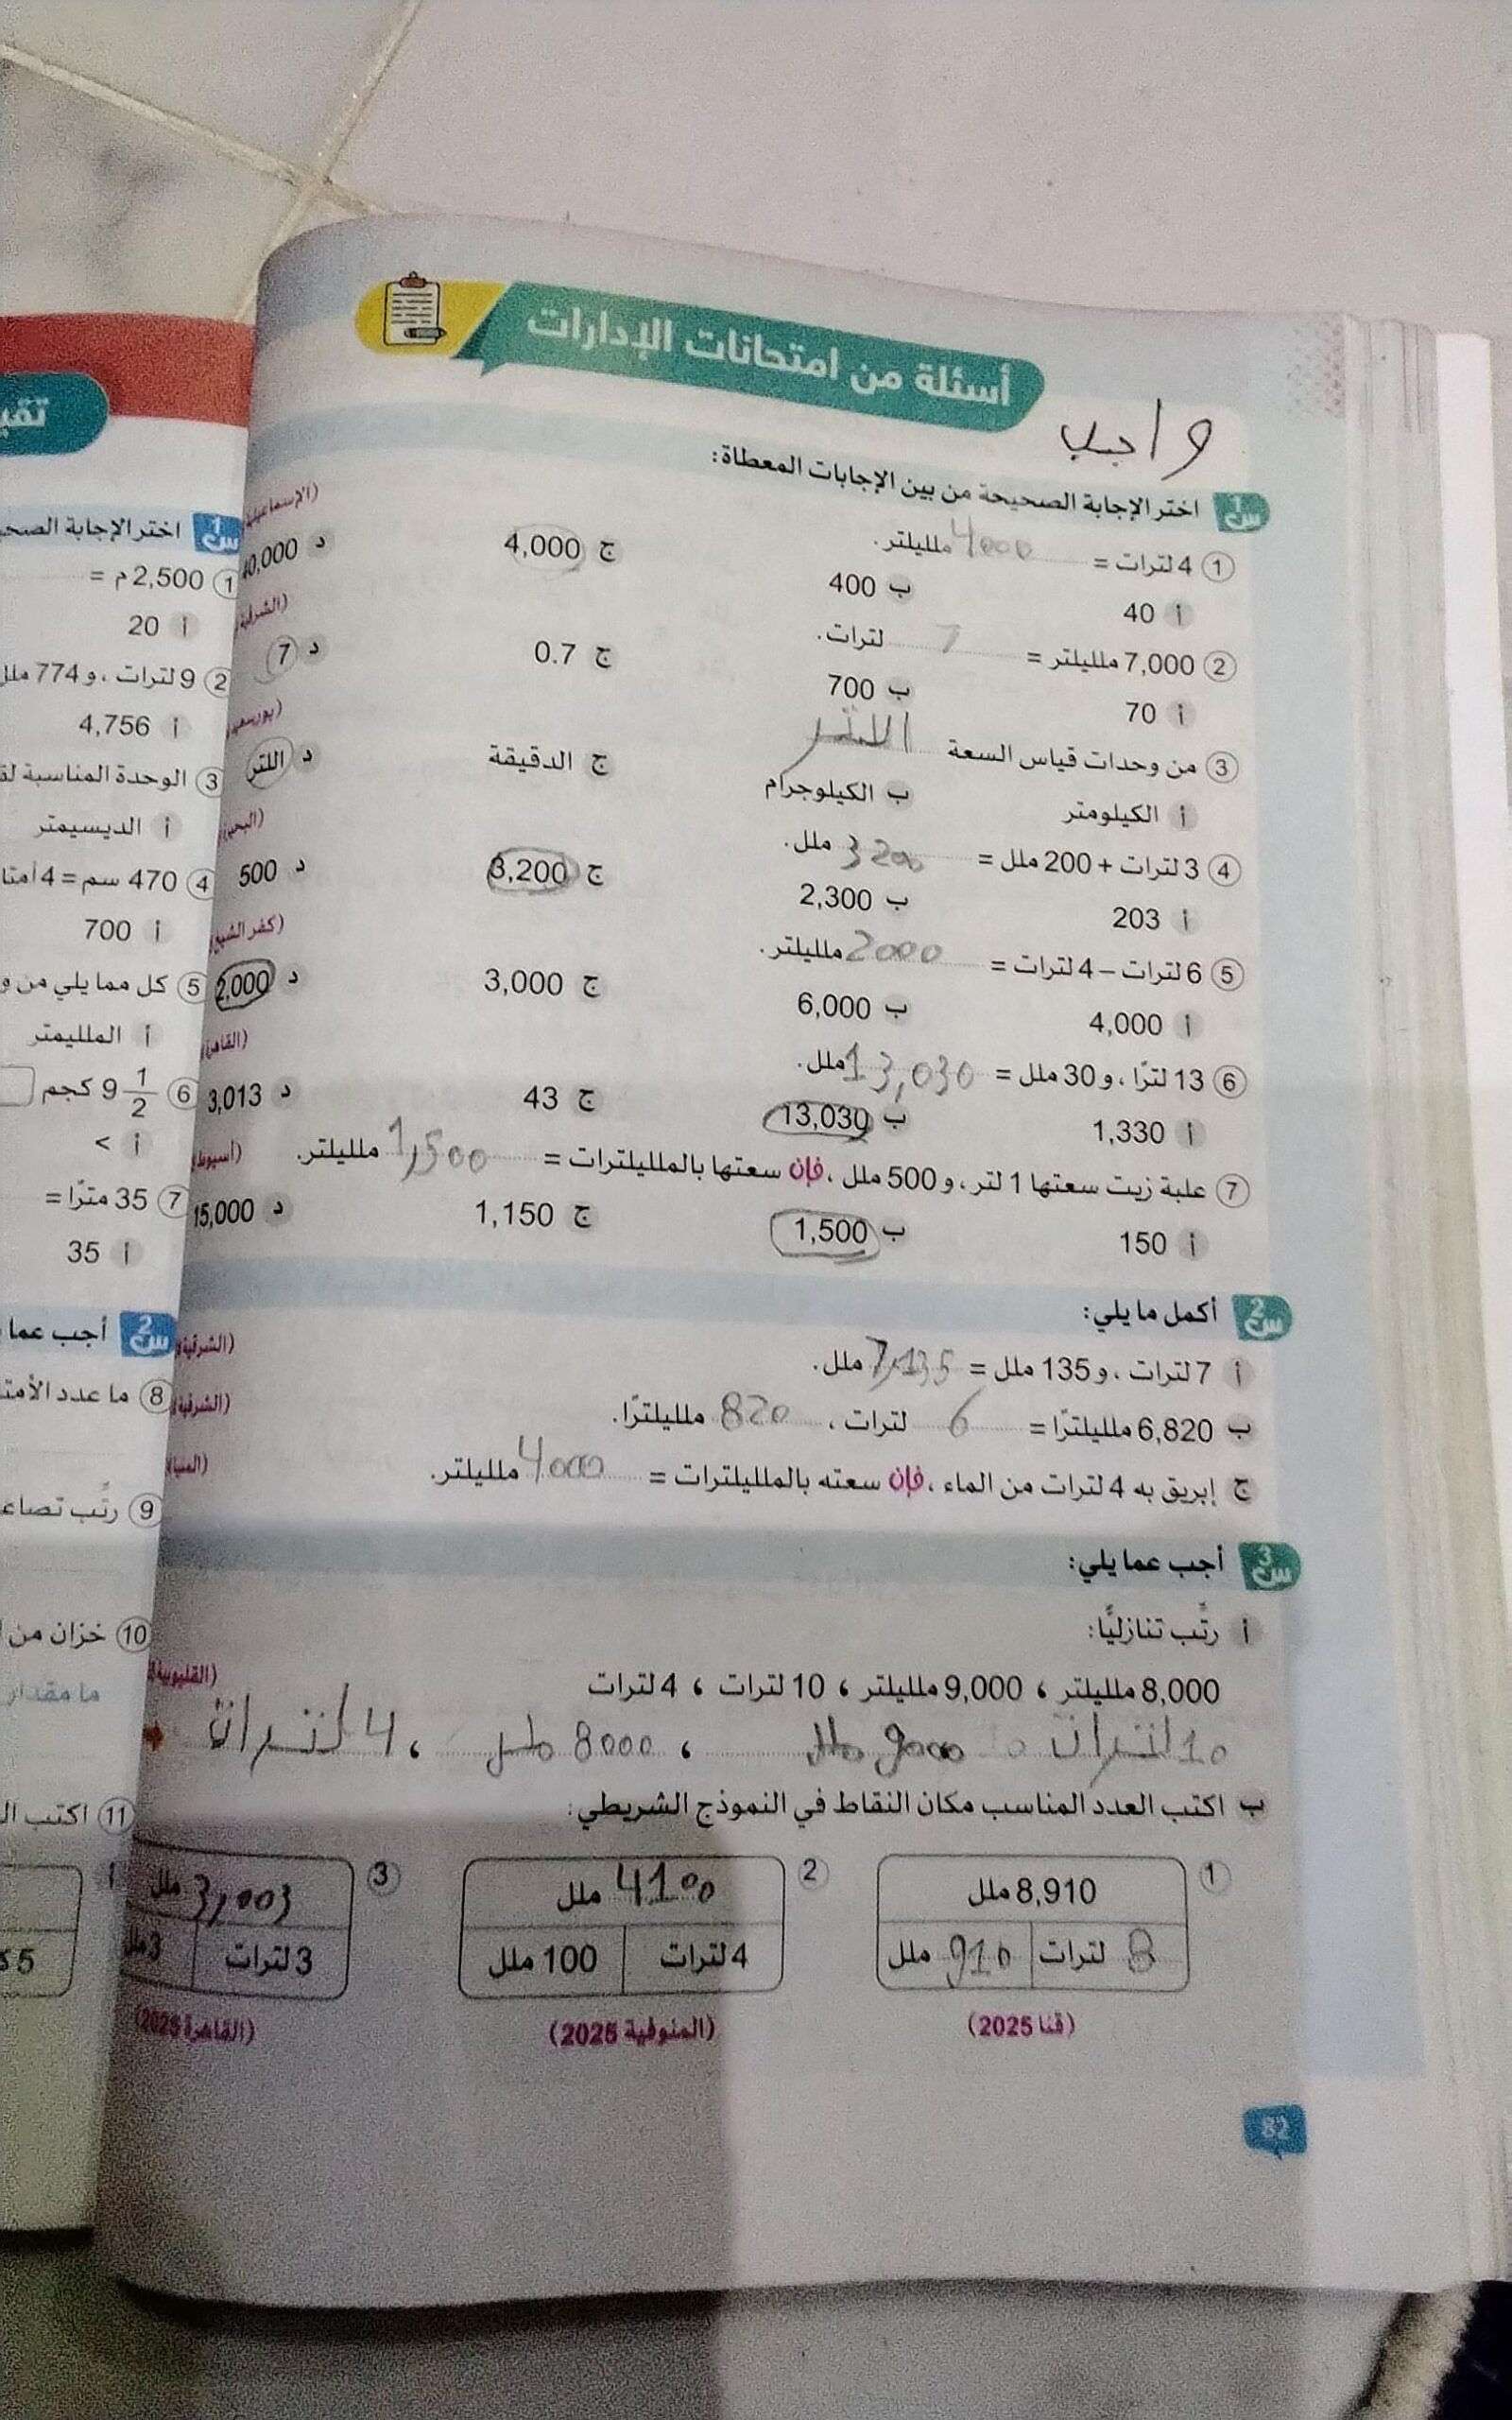 أسئلة من امتحانات الإدارات
واجب
س1 اختر الإجابة الصحيحة من بين الإجابات المعطاة:
1 4 لترات = 4000 ملليلتر. (الإسماعيلية)
أ 40 ب 400 ج 4,000 د 40,000
2 7,000 ملليلتر = 7 لترات. (الشرقية)
أ 70 ب 700 ج 0.7 د 7
3 من وحدات قياس السعة اللتر (بورسعيد)
أ الكيلومتر ب الكيلوجرام ج الدقيقة د اللتر
4 3 لترات + 200 ملل = 3200 ملل. (البحيرة)
أ 203 ب 2,300 ج 3,200 د 500
5 6 لترات – 4 لترات = 2000 ملليلتر. (كفر الشيخ)
أ 4,000 ب 6,000 ج 3,000 د 2,000
6 13 لترًا ، و 30 ملل = 13,030 ملل. (القاهرة)
أ 1,330 ب 13,030 ج 43 د 3,013
7 علبة زيت سعتها 1 لتر ، و 500 ملل ، فإن سعتها بالملليلترات = 1,500 ملليلتر. (أسيوط)
أ 150 ب 1,500 ج 1,150 د 15,000
س2 أكمل ما يلي:
أ 7 لترات ، و 135 ملل = 7,135 ملل. (الشرقية)
ب 6,820 ملليلترًا = 6 لترات ، 820 ملليلترًا. (الشرقية)
ج إبريق به 4 لترات من الماء ، فإن سعته بالملليلترات = 4000 ملليلتر. (المنيا)
س3 أجب عما يلي:
أ رتِّب تنازليًّا:
8,000 ملليلتر ، 9,000 ملليلتر ، 10 لترات ، 4 لترات (القليوبية)
10 لترات 9000 ملل ، 8000 ملل ، 4 لترات
ب اكتب العدد المناسب مكان النقاط في النموذج الشريطي:
1 8,910 ملل
8 لترات 910 ملل
(قنا 2025)
2 4100 ملل
4 لترات 100 ملل
(المنوفية 2025)
3 3,003 ملل
3 لترات 3 ملل
(القاهرة 2025)
82
س1 اختر الإجابة الصحيـ
1 2,500 م =
أ 20
2 9 لترات ، و 774 ملل
أ 4,756
3 الوحدة المناسبة لقـ
أ الديسيمتر
4 470 سم = 4 أمتا
أ 700
5 كل مما يلي من و
أ الملليمتر
6 9 1/2 كجم
أ >
7 35 مترًا =
أ 35
س2 أجب عما
8 ما عدد الأمتـ
9 رتِّب تصاعـ
10 خزان من
ما مقدار
11 اكتب الـ
أ